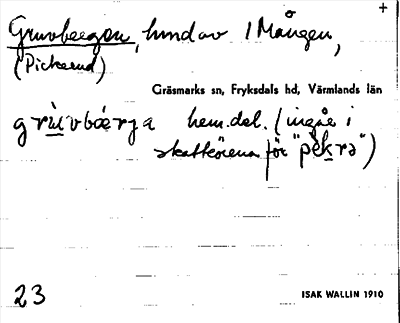 +
Gruvbergen, hmd av 1 Mången,
(Pickerud)
Gräsmarks sn, Fryksdals hd, Värmlands län
hem.del. (ingår i
skattkörena för "pèkrə")
23
ISAK WALLIN 1910